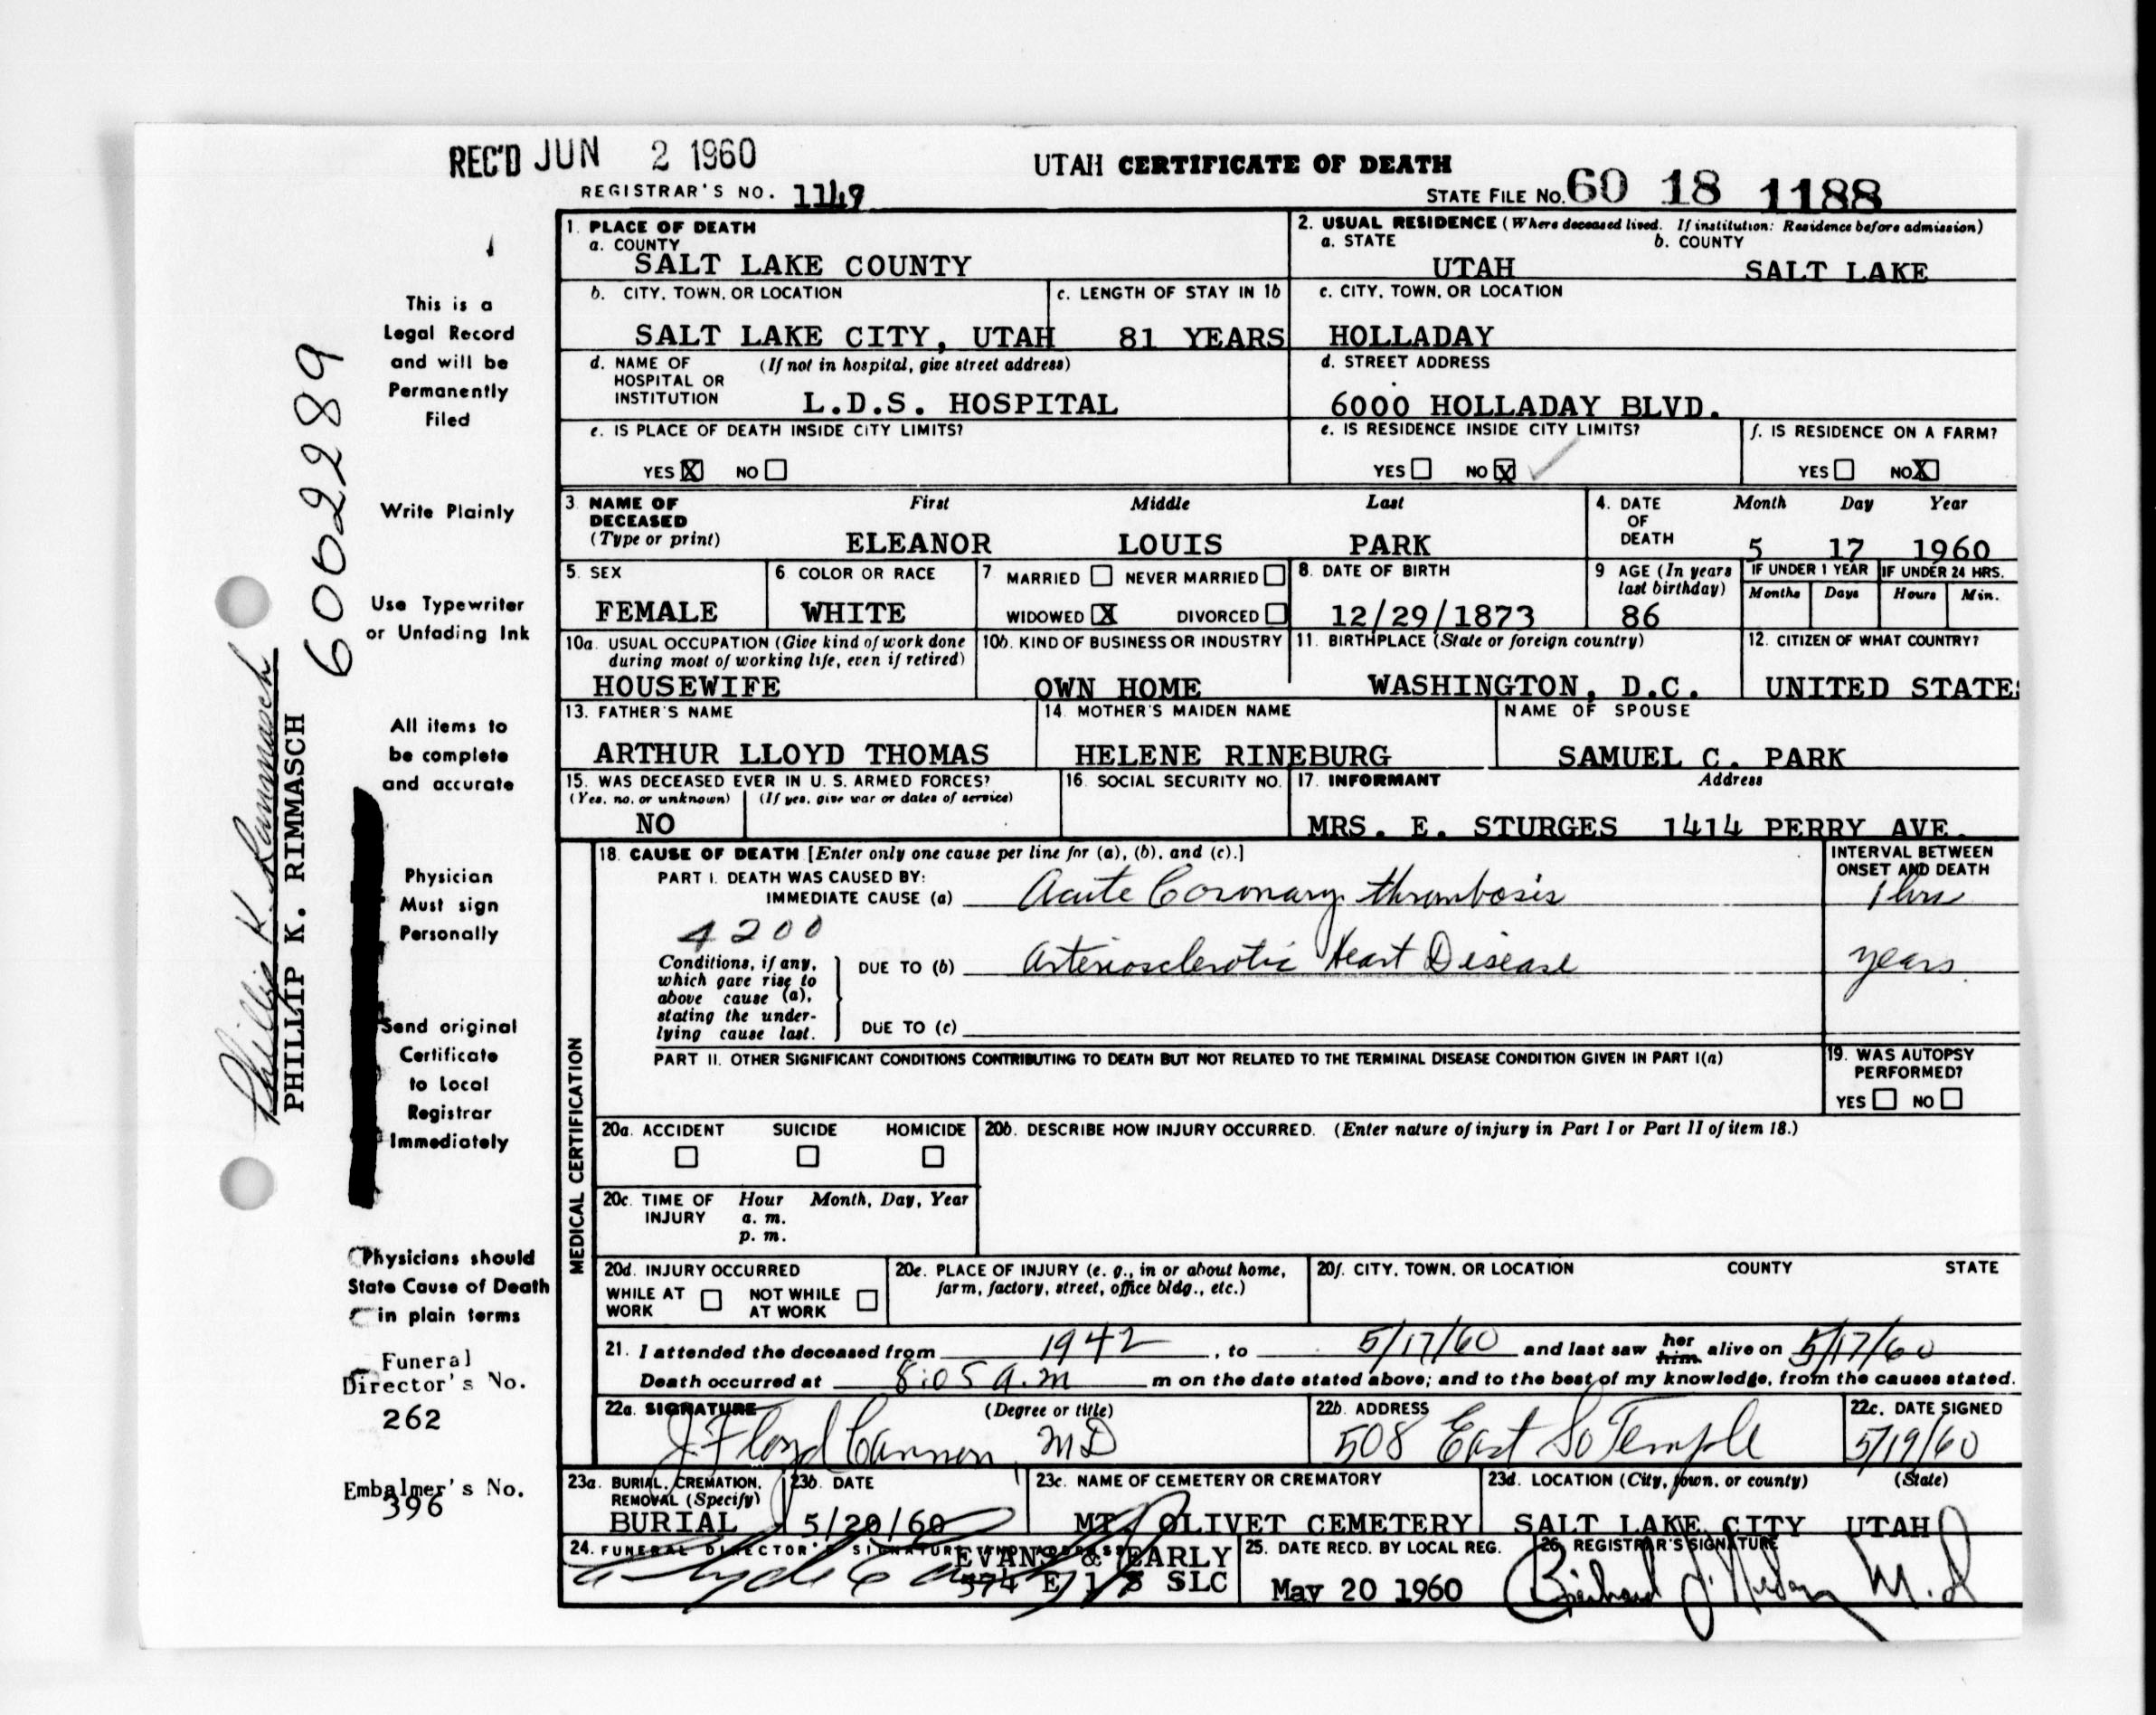 REC'D JUN 2 1960
UTAH CERTIFICATE OF DEATH
REGISTRAR'S NO. 1149
STATE FILE NO. 60 18 1188
This is a
Legal Record
and will be
Permanently
Filed
Write Plainly
Use Typewriter
or Unfading Ink
All items to
be complete
and accurate
Physician
Must sign
Personally
Send original
Certificate
to Local
Registrar
Immediately
Physicians should
State Cause of Death
in plain terms
Funeral
Director's No.
262
Embalmer's No.
396
6062289
PHILLIP K. RIMMASCH
1. PLACE OF DEATH
a. COUNTY
SALT LAKE COUNTY
2. USUAL RESIDENCE (Where deceased lived. If institution: Residence before admission)
a. STATE b. COUNTY
UTAH SALT LAKE
b. CITY, TOWN, OR LOCATION
SALT LAKE CITY, UTAH
c. LENGTH OF STAY IN 1b
81 YEARS
c. CITY, TOWN, OR LOCATION
HOLLADAY
d. NAME OF (If not in hospital, give street address)
HOSPITAL OR
INSTITUTION
L.D.S. HOSPITAL
d. STREET ADDRESS
6000 HOLLADAY BLVD.
e. IS PLACE OF DEATH INSIDE CITY LIMITS?
YES X NO
e. IS RESIDENCE INSIDE CITY LIMITS?
YES NO X
f. IS RESIDENCE ON A FARM?
YES NO X
3. NAME OF First Middle Last
DECEASED
(Type or print)
ELEANOR LOUIS PARK
4. DATE Month Day Year
OF
DEATH 5 17 1960
5. SEX
FEMALE
6. COLOR OR RACE
WHITE
7. MARRIED NEVER MARRIED
WIDOWED X DIVORCED
8. DATE OF BIRTH
12/29/1873
9 AGE (In years
last birthday)
86
IF UNDER 1 YEAR IF UNDER 24 HRS.
Months Days Hours Min.
10a. USUAL OCCUPATION (Give kind of work done
during most of working life, even if retired)
HOUSEWIFE
10b. KIND OF BUSINESS OR INDUSTRY
OWN HOME
11. BIRTHPLACE (State or foreign country)
WASHINGTON, D.C.
12. CITIZEN OF WHAT COUNTRY?
UNITED STATES
13. FATHER'S NAME
ARTHUR LLOYD THOMAS
14. MOTHER'S MAIDEN NAME
HELENE RINEBURG
NAME OF SPOUSE
SAMUEL C. PARK
15. WAS DECEASED EVER IN U. S. ARMED FORCES?
(Yes, no, or unknown) (If yes, give war or dates of service)
NO
16. SOCIAL SECURITY NO.
17. INFORMANT Address
MRS. E. STURGES 1414 PERRY AVE.
MEDICAL CERTIFICATION
18. CAUSE OF DEATH [Enter only one cause per line for (a), (b), and (c).]
INTERVAL BETWEEN
ONSET AND DEATH
PART I. DEATH WAS CAUSED BY:
IMMEDIATE CAUSE (a) Acute Coronary thrombosis 1 hr
4200
Conditions, if any,
which gave rise to
above cause (a),
stating the under-
lying cause last.
DUE TO (b) Arteriosclerotic Heart Disease years
DUE TO (c)
PART II. OTHER SIGNIFICANT CONDITIONS CONTRIBUTING TO DEATH BUT NOT RELATED TO THE TERMINAL DISEASE CONDITION GIVEN IN PART I(a)
19. WAS AUTOPSY
PERFORMED?
YES NO
20a. ACCIDENT SUICIDE HOMICIDE
20b. DESCRIBE HOW INJURY OCCURRED. (Enter nature of injury in Part I or Part II of item 18.)
20c. TIME OF Hour Month, Day, Year
INJURY a. m.
p. m.
20d. INJURY OCCURRED
WHILE AT NOT WHILE
WORK AT WORK
20e. PLACE OF INJURY (e. g., in or about home,
farm, factory, street, office bldg., etc.)
20f. CITY, TOWN, OR LOCATION COUNTY STATE
21. I attended the deceased from 1942, to 5/17/60 and last saw her him alive on 5/17/60
Death occurred at 8:05 a.m m on the date stated above; and to the best of my knowledge, from the causes stated.
22a. SIGNATURE (Degree or title)
J. Floyd Cannon, MD
22b. ADDRESS
508 East So Temple
22c. DATE SIGNED
5/19/60
23a. BURIAL, CREMATION,
REMOVAL (Specify)
BURIAL
23b. DATE
5/20/60
23c. NAME OF CEMETERY OR CREMATORY
MT. OLIVET CEMETERY
23d. LOCATION (City, town, or county) (State)
SALT LAKE CITY UTAH
24. FUNERAL DIRECTOR'S SIGNATURE AND ADDRESS
EVANS & EARLY
574 E 1 S SLC
25. DATE RECD. BY LOCAL REG.
May 20 1960
26. REGISTRAR'S SIGNATURE
M.D